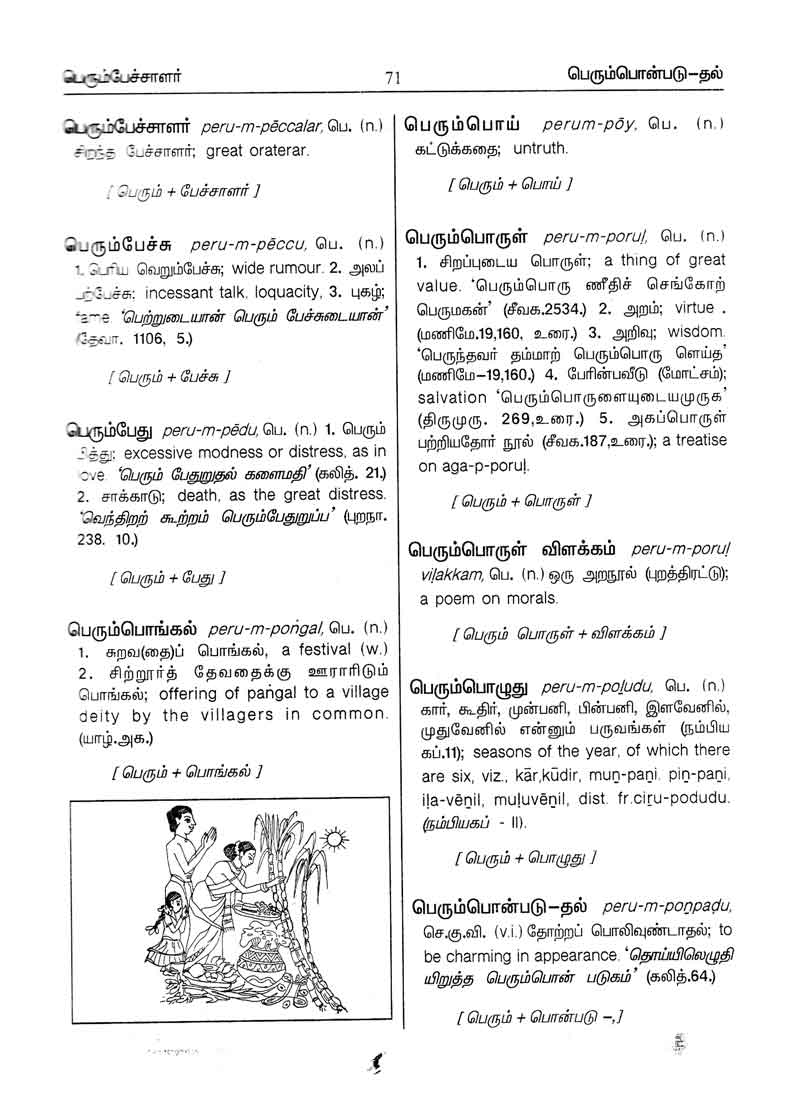 பெரும்பேச்சாளர்
71
பெரும்பொன்படு–தல்
பெரும்பேச்சாளர் peru-m-pēccalar, பெ. (n.)
சிறந்த பேச்சாளர்; great oraterar.
[ பெரும் + பேச்சாளர் ]
பெரும்பேச்சு peru-m-pēccu, பெ. (n.)
1. பெரிய வெறும்பேச்சு; wide rumour. 2. அலப்
பற்பேச்சு: incessant talk, loquacity, 3. புகழ்;
fame 'பெற்றுடையான் பெரும் பேச்சுடையான்'
(தேவா. 1106, 5.)
[ பெரும் + பேச்சு ]
பெரும்பேது peru-m-pēdu, பெ. (n.) 1. பெரும்
excessive modness or distress, as in
love. 'பெரும் பேதுறுதல் களைமதி' (கலித். 21.)
2. சாக்காடு; death, as the great distress.
'வெந்திறற் கூற்றம் பெரும்பேதுறுப்ப' (புறநா.
238. 10.)
[ பெரும் + பேது ]
பெரும்பொங்கல் peru-m-poṅgal, பெ. (n.)
1. சுறவ(தை)ப் பொங்கல், a festival (w.)
2. சிற்றூர்த் தேவதைக்கு ஊராரிடும்
பொங்கல்; offering of paṅgal to a village
deity by the villagers in common.
(யாழ்.அக.)
[ பெரும் + பொங்கல் ]
பெரும்பொய் perum-pōy, பெ. (n.)
கட்டுக்கதை; untruth.
[ பெரும் + பொய் ]
பெரும்பொருள் peru-m-poruḷ, பெ. (n.)
1. சிறப்புடைய பொருள்; a thing of great
value. 'பெரும்பொரு ணீதிச் செங்கோற்
பெருமகன்' (சீவக.2534.) 2. அறம்; virtue .
(மணிமே.19,160, உரை.) 3. அறிவு; wisdom.
'பெருந்தவர் தம்மாற் பெரும்பொரு ளெய்த'
(மணிமே–19,160.) 4. பேரின்பவீடு (மோட்சம்);
salvation 'பெரும்பொருளையுடையமுருக'
(திருமுரு. 269,உரை.) 5. அகப்பொருள்
பற்றியதோர் நூல் (சீவக.187,உரை.); a treatise
on aga-p-poruḷ.
[ பெரும் + பொருள் ]
பெரும்பொருள் விளக்கம் peru-m-poruḷ
viḷakkam, பெ. (n.) ஒரு அறநூல் (புறத்திரட்டு);
a poem on morals.
[ பெரும் பொருள் + விளக்கம் ]
பெரும்பொழுது peru-m-poḻudu, பெ. (n.)
கார், கூதிர், முன்பனி, பின்பனி, இளவேனில்,
முதுவேனில் என்னும் பருவங்கள் (நம்பிய
கப்.11); seasons of the year, of which there
are six, viz., kār,kūdir, muṉ-paṉi, piṉ-paṉi,
iḷa-vēṉil, muḻuvēṉil, dist. fr.ciṟu-podudu.
(நம்பியகப் - II).
[ பெரும் + பொழுது ]
பெரும்பொன்படு–தல் peru-m-poṉpaḍu,
செ.கு.வி. (v.i.) தோற்றப் பொலிவுண்டாதல்; to
be charming in appearance. 'தொய்யிலெழுதி
யிறுத்த பெரும்பொன் படுகம்' (கலித்.64.)
[ பெரும் + பொன்படு –,]